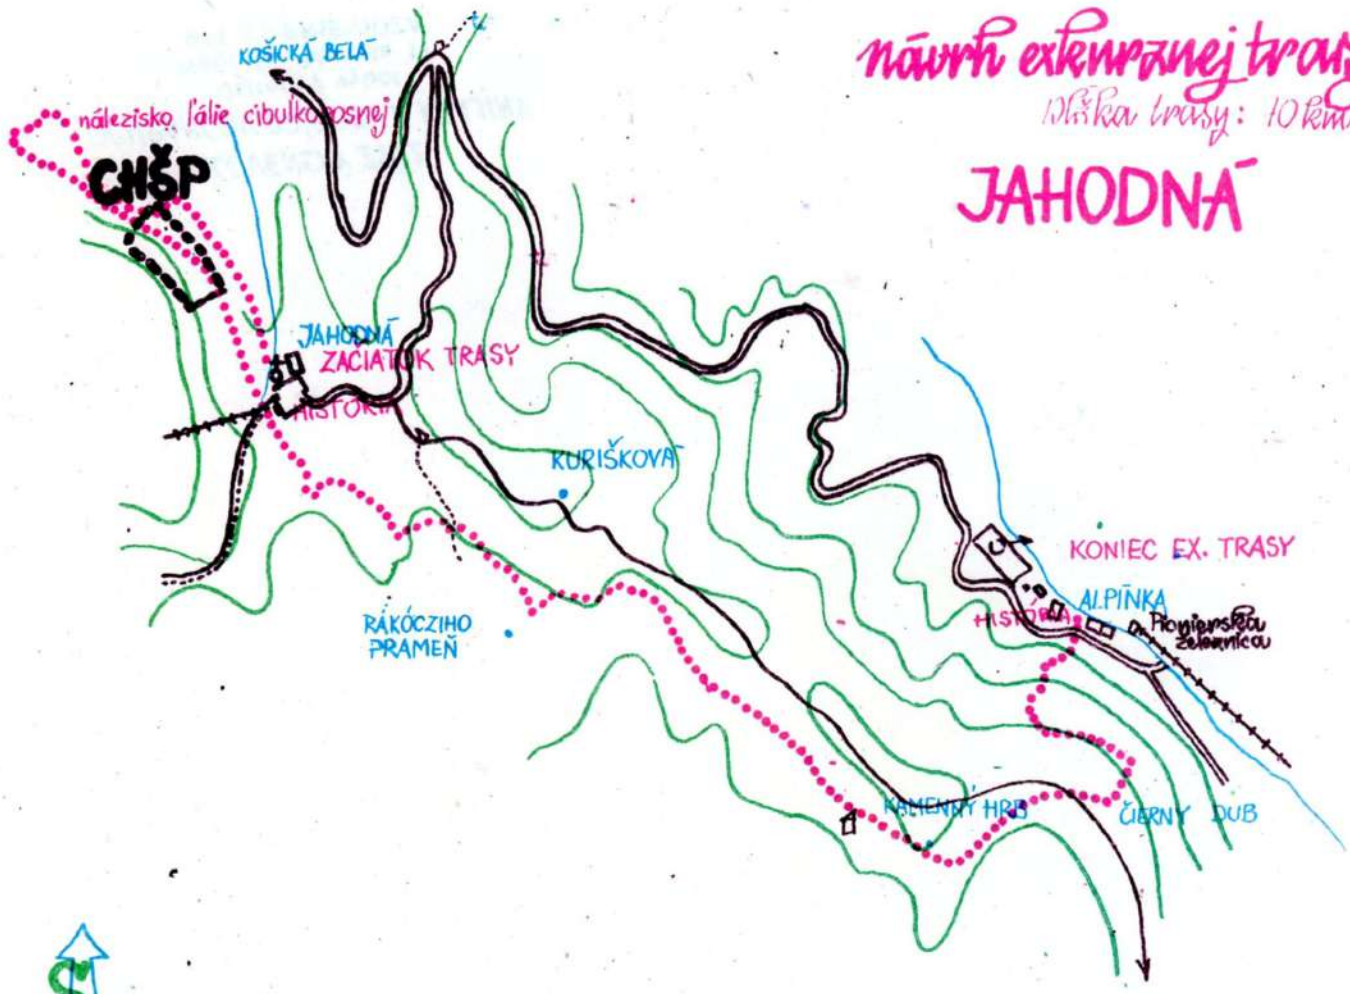 návrh exkurznej trasy
Dĺžka trasy: 10 km
JAHODNÁ
KOŠICKÁ BELÁ
nálezisko ľálie cibulkonosnej
CHŠP
JAHODNÁ
ZAČIATOK TRASY
HISTÓRIA
KURIŠKOVÁ
RÁKÓCZIHO
PRAMEŇ
KONIEC EX. TRASY
ALPÍNKA
HISTÓRIA
Pionierska
železnica
KAMENNÝ HRB
ČIERNY DUB
S